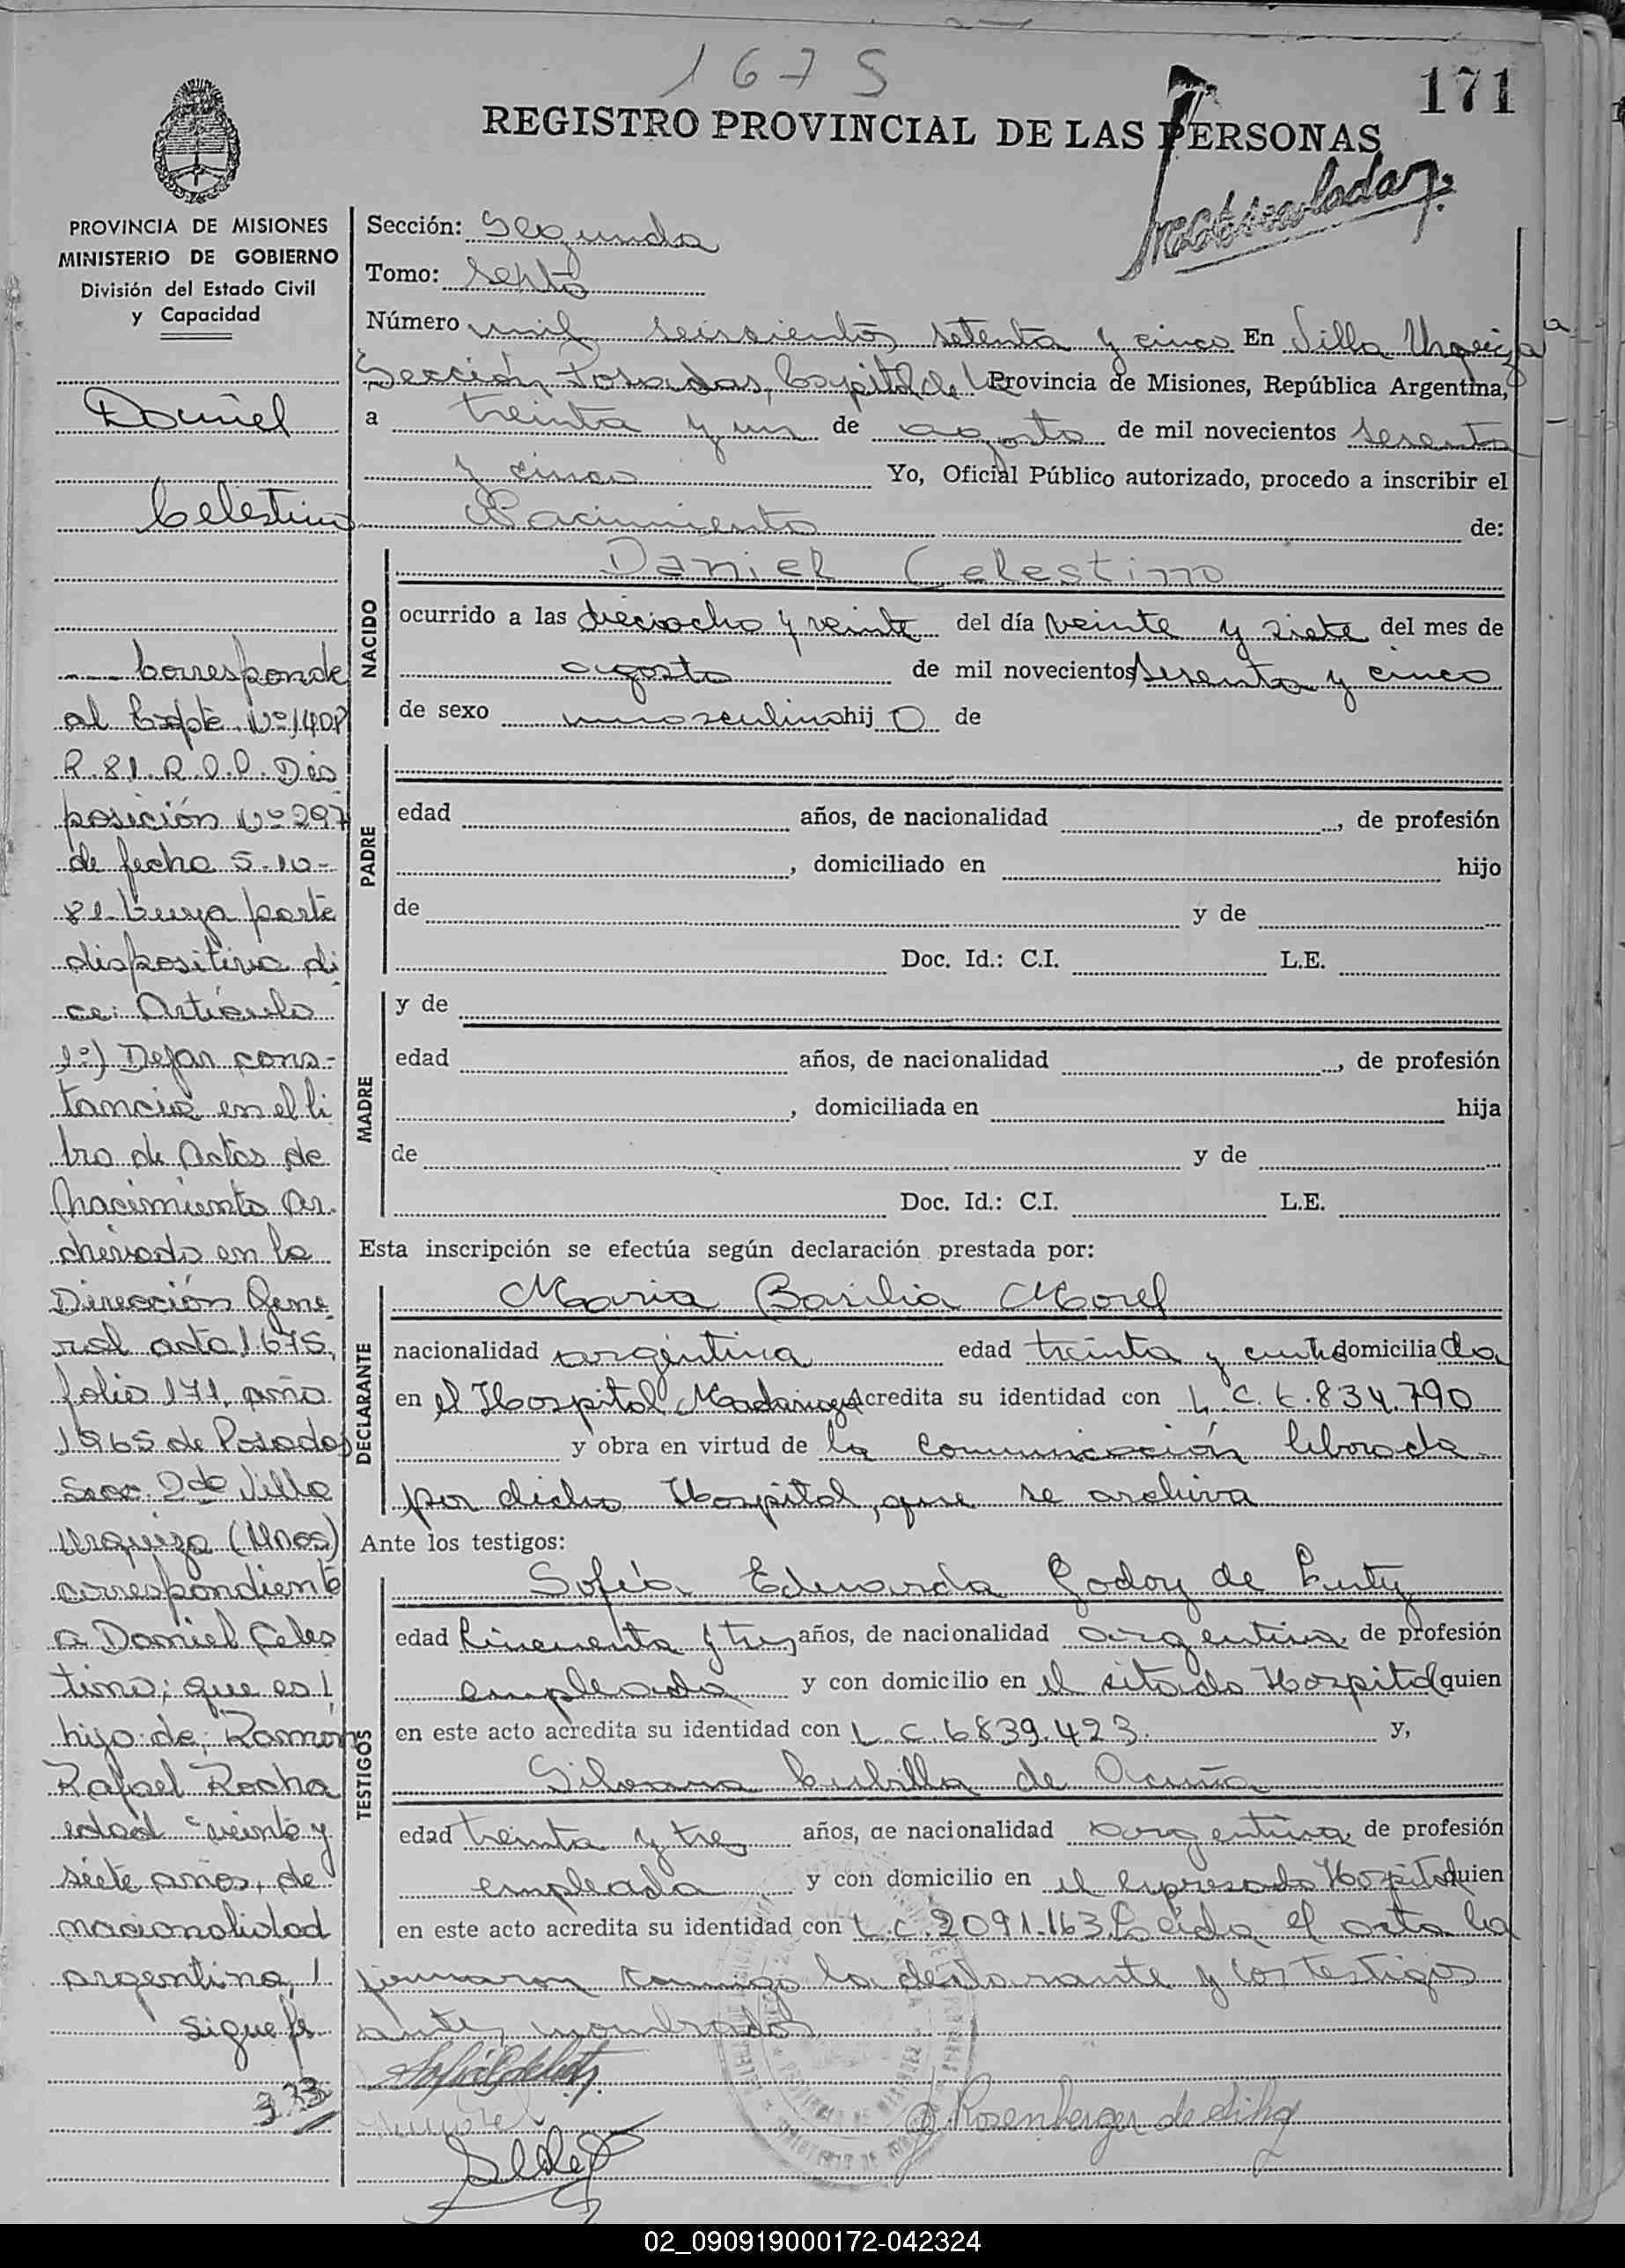 1675
171
REGISTRO PROVINCIAL DE LAS PERSONAS
PROVINCIA DE MISIONES
MINISTERIO DE GOBIERNO
División del Estado Civil
y Capacidad
Daniel
Celestino
---- Corresponde
al Expte. Nº 1408
R.81.R.P.P. Dis
posición Nº 297
de fecha 5-10-
81- Cuya parte
dispositiva di
ce: Artículo
1º) Dejar cons-
tancia en el li
bro de Actas de
Nacimiento Ar-
chivado en la
Dirección Gene
ral acta 1675,
folio 171, año
1965 de Posadas
Secc. 2da Villa
Urquiza (Mnes)
correspondiente
a Daniel Celes
tino; que es
hijo de; Ramón
Rafael Rocha
edad veinte y
siete años, de
nacionalidad
argentina,
Sigue fs.
373
Sección: Segunda
Tomo: septo
Número mil seiscientos setenta y cinco En Villa Urquiza
Sección, Posadas, Capital de la Provincia de Misiones, República Argentina,
a treinta y un de agosto de mil novecientos sesenta
y cinco Yo, Oficial Público autorizado, procedo a inscribir el
Nacimiento de:
NACIDO
Daniel Celestino
ocurrido a las dieciocho y veinte del día veinte y siete del mes de
agosto de mil novecientos sesenta y cinco
de sexo masculino hijo de
PADRE
edad años, de nacionalidad , de profesión
, domiciliado en hijo
de y de
Doc. Id.: C.I. L.E.
MADRE
y de
edad años, de nacionalidad , de profesión
, domiciliada en hija
de y de
Doc. Id.: C.I. L.E.
Esta inscripción se efectúa según declaración prestada por:
DECLARANTE
Maria Basilia Morel
nacionalidad argentina edad treinta y domiciliada
en el Hospital Madariaga Acredita su identidad con L.C. 6.834.790
y obra en virtud de la comunicación librada
por dicho Hospital, que se archiva
Ante los testigos:
TESTIGOS
Sofía Eduarda Godoy de
edad Cincuenta y tres años, de nacionalidad argentina de profesión
empleada y con domicilio en el sitado Hospital quien
en este acto acredita su identidad con L.C. 6839.423. y,
Silvana Cubilla de Acuña
edad treinta y tres años, de nacionalidad argentina, de profesión
empleada y con domicilio en el Expresado Hospital quien
en este acto acredita su identidad con L.C. 2091.163 Leida el acta la
firmaron conmigo la declarante y los testigos
antes nombrados
Rosenberger de
02_090919000172-042324